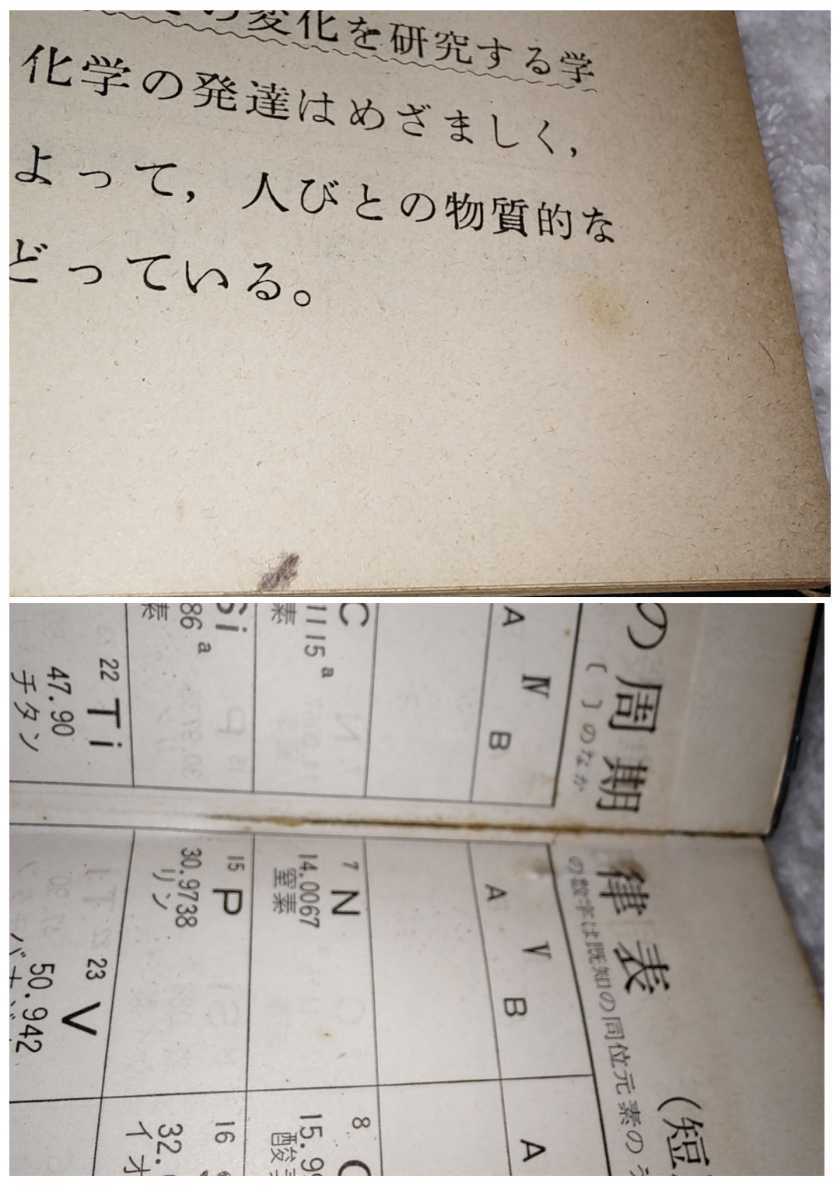 の変化を研究する学
化学の発達はめざましく,
よって, 人びとの物質的な
どっている。
の周期律表 (短
〔 〕のなか
の数字は既知の同位元素のう
Ⅳ
A B
Ⅴ
A B
A
C
1115 a
素
Si
86 a
素
22 Ti
47.90
チタン
7 N
14.0067
窒素
15 P
30.9738
リン
23 V
50.942
バナジ
8
15.99
酸
16
32.
イオ